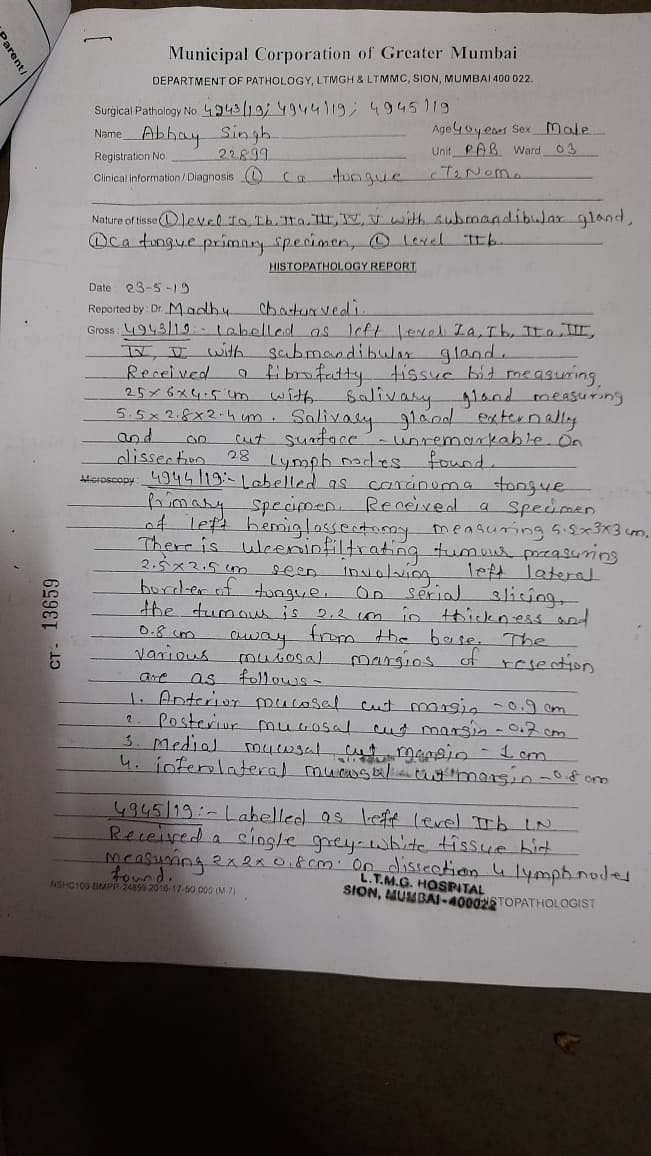 Parent/
Municipal Corporation of Greater Mumbai
DEPARTMENT OF PATHOLOGY, LTMGH & LTMMC, SION, MUMBAI 400 022.
Surgical Pathology No. 4943/19; 4944/19; 4945/19
Name Abhay Singh Age 40 years Sex Male
Registration No. 22899 Unit RAB Ward 03
Clinical information / Diagnosis Ⓛ Ca tongue cT2N0M0
Nature of tisse Ⓛ level Ia, Ib, IIa, III, IV, V with submandibular gland,
Ⓛ Ca tongue primary specimen, Ⓛ level IIb.
HISTOPATHOLOGY REPORT
Date : 23-5-19
Reported by : Dr. Madhu Chaturvedi.
Gross : 4943/19:- Labelled as left level Ia, Ib, IIa, III,
IV, V with submandibular gland.
Received a fibrofatty tissue bit measuring
25x6x4.5 cm with salivary gland measuring
5.5x2.8x2.4 cm. Salivary gland externally
and on cut surface - unremarkable. On
dissection 28 lymph nodes found.
Microscopy: 4944/19:- Labelled as carcinoma tongue
Primary specimen. Received a specimen
of left hemiglossectomy measuring 5.5x3x3 cm.
There is ulceroinfiltrating tumour measuring
2.5x2.5 cm seen involving left lateral
border of tongue. On serial slicing,
the tumour is 2.2 cm in thickness and
0.8 cm away from the base. The
various mucosal margins of resection
are as follows-
1. Anterior mucosal cut margin - 0.9 cm
2. Posterior mucosal cut margin - 0.7 cm
3. Medial mucosal cut margin - 1 cm
4. inferolateral mucosal cut margin - 0.8 cm
4945/19:- Labelled as left level IIb LN
Received a single grey-white tissue bit
measuring 2x2x0.8cm. On dissection 4 lymph nodes
found.
NSHC109-BMPP-24899-2016-17-50,000 (M-7)
L.T.M.G. HOSPITAL
SION, MUMBAI-400022
STOPATHOLOGIST
CT- 13659